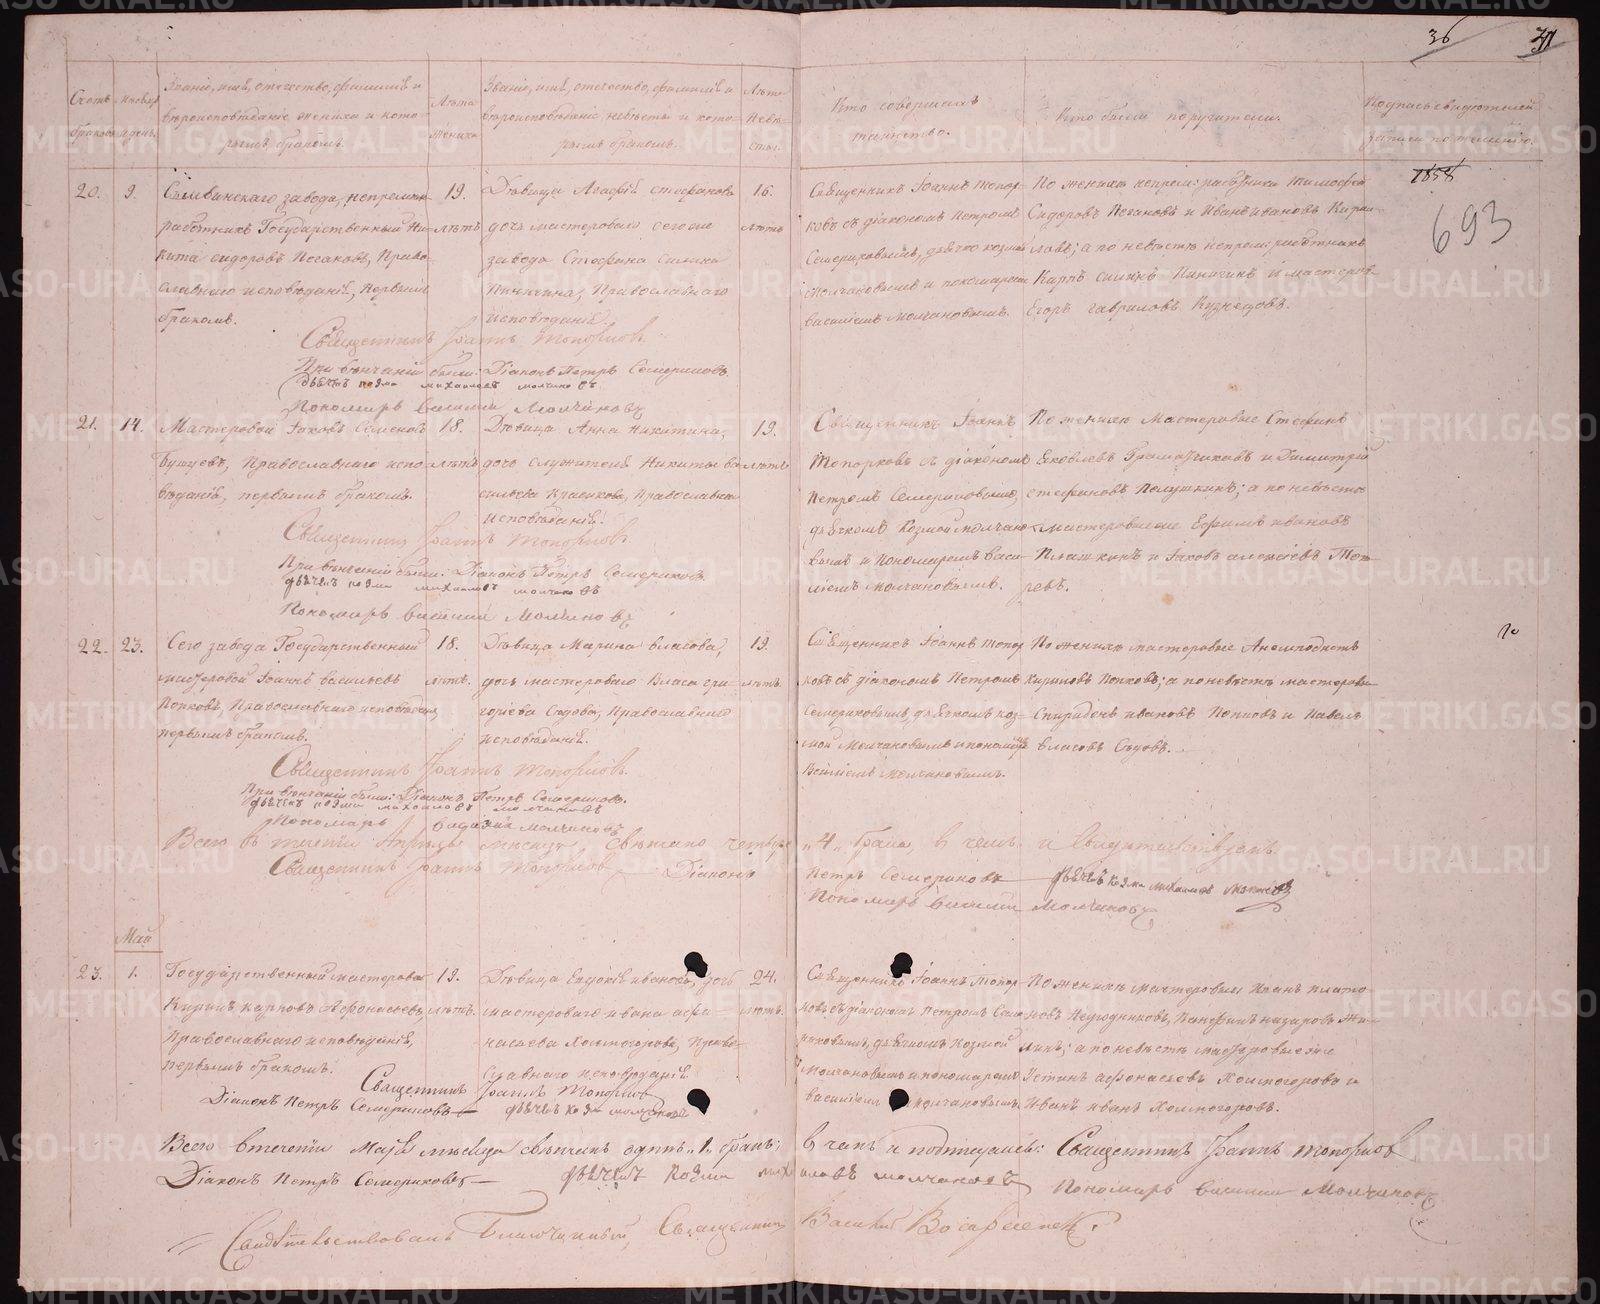 36
Счетъ браковъ
Мѣсяцъ и день
Званіе, имя, отечество, фамилія и
вѣроисповѣданіе жениха и кото-
рымъ бракомъ.
Лѣта жениха
Званіе, имя, отечество, фамилія и
вѣроисповѣданіе невѣсты и кото-
рымъ бракомъ.
Лѣта невѣ-
сты.
Кто совершалъ
таинство.
Кто были поручители.
Подпись свидѣтелей
записи по желанію.
693
20. 9.
завода, непремѣн
работникъ Государственный Ни-
кита Сидоровъ Право-
славнаго исповѣданія, первымъ
бракомъ.
19.
лѣтъ
Дѣвица Стефанова
дочь мастероваго сего же
завода Стефана
Православнаго
исповѣданія.
16.
лѣтъ
Священникъ Іоаннъ Топор-
ковъ съ діакономъ Петромъ
Семериковымъ, дьячко козмой
Молчановымъ и пономаремъ
василіемъ Молчановымъ.
По женихѣ непрем: работники Тимофей
Сидоровъ и Иванъ Ивановъ
а по невѣстѣ непрем: работникъ
Карпъ и мастеров
Егоръ Гавриловъ Кузнецовъ.
Священникъ Іоаннъ Топорковъ
При вѣнчаніи были: Діаконъ Петръ Семериковъ
дьячекъ козма михаиловъ молчановъ
Пономарь Василій Молчановъ
21. 14.
Мастеровой Іаковъ Семеновъ
Православнаго испо-
вѣданія, первымъ бракомъ.
18.
лѣтъ
Дѣвица Анна Никитина,
дочь служителя Никиты Ва-
сильева Красикова, Православна
исповѣданія.
19.
лѣтъ
Священникъ Іоаннъ
Топорковъ съ діакономъ
Петромъ Семериковымъ,
дьячкомъ Козмой Молчано-
вымъ и Пономаремъ Васи-
ліемъ Молчановымъ.
По женихѣ Мастеровые Стефанъ
Яковлевъ и Димитрій
Стефановъ а по невѣстѣ
мастеровые Ефимъ Ивановъ
и Іаковъ Алексіевъ
Священникъ Іоаннъ Топорковъ
При вѣнчаніи были: Діаконъ Петръ Семериковъ
дьячекъ козма михаиловъ молчановъ
Пономарь Василій Молчановъ
22. 23.
Сего завода Государственный
мастеровой Іоаннъ Васильевъ
Попковъ, Православнаго исповѣданія
первымъ бракомъ.
18.
лѣтъ.
Дѣвица Марина Власова,
дочь мастероваго Власа Гри-
горіева Седова, Православнаго
исповѣданія.
19.
лѣтъ.
Священникъ Іоаннъ Топор
ковъ съ діакономъ Петромъ
Семериковымъ, дьячкомъ коз-
мой Молчановымъ и пономаре
Василіемъ Молчановымъ.
По женихѣ мастеровые Анемподистъ
Кириловъ Попковъ; а по невѣстѣ мастеровы
Спиридонъ Ивановъ Попковъ и Павелъ
Власовъ Седовъ.
Священникъ Іоаннъ Топорковъ
При вѣнчаніи были: Діаконъ Петръ Семериковъ.
дьячекъ козма михаиловъ молчановъ
Пономарь Василій Молчановъ
Всего въ теченіи Апрѣля мѣсяца, свѣнчано четыре „4„ брака, въ чемъ и свидѣтельствуемъ
Священникъ Іоаннъ Топорковъ Діаконъ Петръ Семериковъ дьячекъ козма михаиловъ молчановъ
Пономарь Василій Молчановъ
Май
23. 1.
Государственный мастеровой
Кирилъ Карповъ Афонасьевъ,
Православнаго исповѣданія,
первымъ бракомъ.
19.
лѣтъ.
Дѣвица Евдокія Иванова, дочь
мастероваго Ивана Афа-
насьева Холмогорова, Право-
славнаго исповѣданія.
24.
лѣтъ.
Священникъ Іоаннъ Топор-
ковъ съ діакономъ Петромъ Семе
риковымъ, дьячкомъ Козмой
Молчановымъ и пономаремъ
василіемъ Молчановымъ
По женихѣ мастеровые Иванъ Плато
новъ Негодниковъ, Панфилъ Назаровъ
а по невѣстѣ мастеровые же
Устинъ Афонасьевъ Холмогоровъ и
Иванъ Иванъ Холмогоровъ.
Священникъ Іоаннъ Топорковъ
Діаконъ Петръ Семериковъ дьячекъ козма молчановъ
Всего втеченіи Маія мѣсяца свѣнчанъ одинъ „1„ бракъ; в чемъ и подпишемсь: Священникъ Іоаннъ Топорковъ
Діаконъ Петръ Семериковъ дьячекъ козма михаиловъ молчановъ Пономарь Василій Молчановъ
Свидѣтельствовалъ Благочинный, Священникъ Василій
METRIKI.GASO-URAL.RU